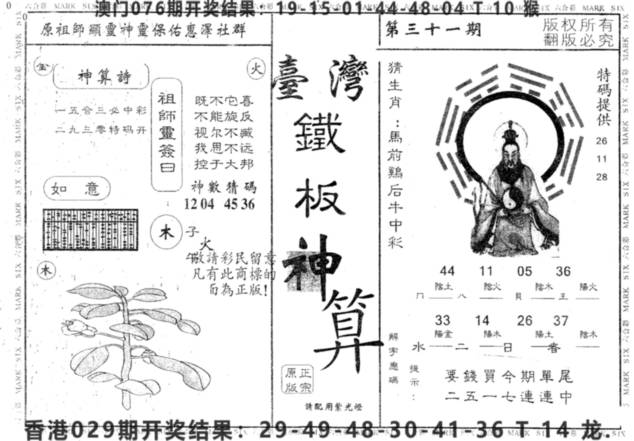 澳门076期开奖结果：19-13-01-44-48-04 T 10 猴
原祖師顯靈神靈保佑惠澤社群
金
神算詩
火
一五合三必中彩
二九三零特码开
祖師靈簽曰
既不它喜
不能旋反
视尔不臧
我思不远
控于大邦
神數猜碼
12 04 45 36
如意
木
子
火
午
敬請彩民留意
凡有此商標的
面為正版！
木
臺灣鐵板神算
正宗原版
請配用紫光燈
第三十一期
版权所有
翻版必究
猜生肖：馬前鷄后牛中彩
特碼提供
26
11
28
44 11 05 36
陰土 陰火 陰木 陽火
八
33 14 26 37
陽金 陽木 陽土 陰木
水 二 日
解字應碼
提示：
要錢買今期單尾
二五一七連連中
香港029期开奖结果：29-49-48-30-41-36 T 14 龙